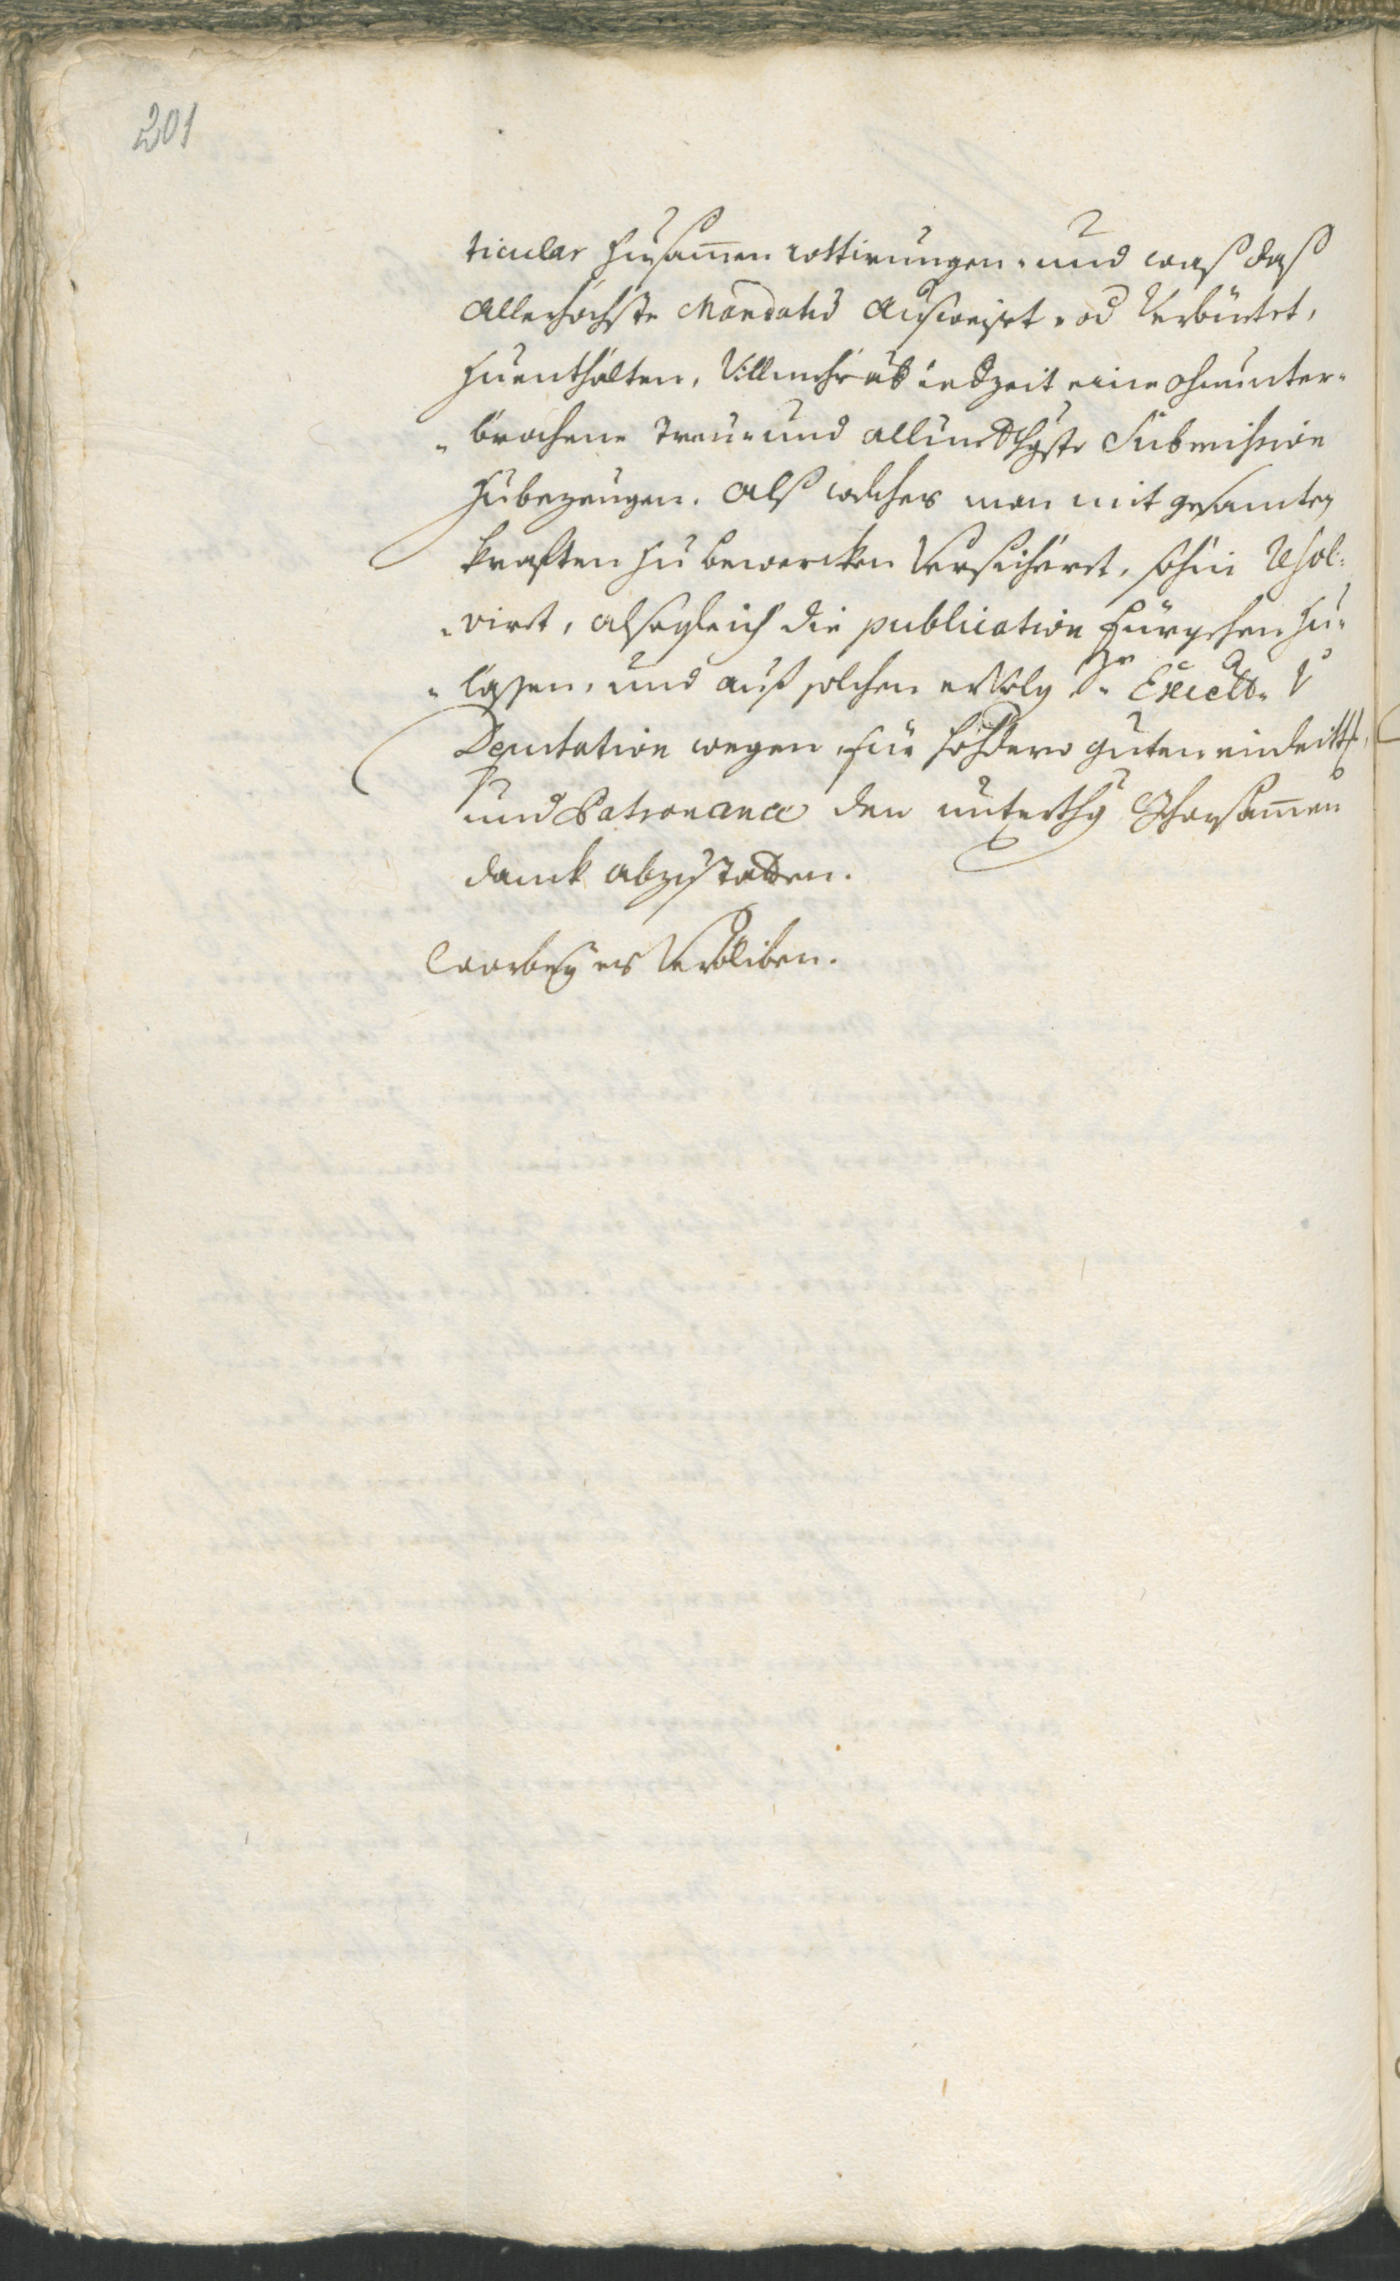 201
ticular Zusam̄en rottirungen. und waß daß
Allerhöchste Mandatum Ausweiset. od Verbüetet,
Zuenthalten, Villmehr ab iedzeit eine ohnunter-
-brochene Treu- und allundthgste Submission
Zubezeugen. Alß welches man mit gesamten
kräfften Zu bewercken Versichert, sohin resol-
-virt, alsogleich die publication fürgehen Zu-
-lassen, und auß solchen erfolg Excell.
Deputation wegen für hochdero guten eintritt,
und Patronance den unterthg Ghorsam̄en
danck abzustatten.
Worbey es Verbliben.